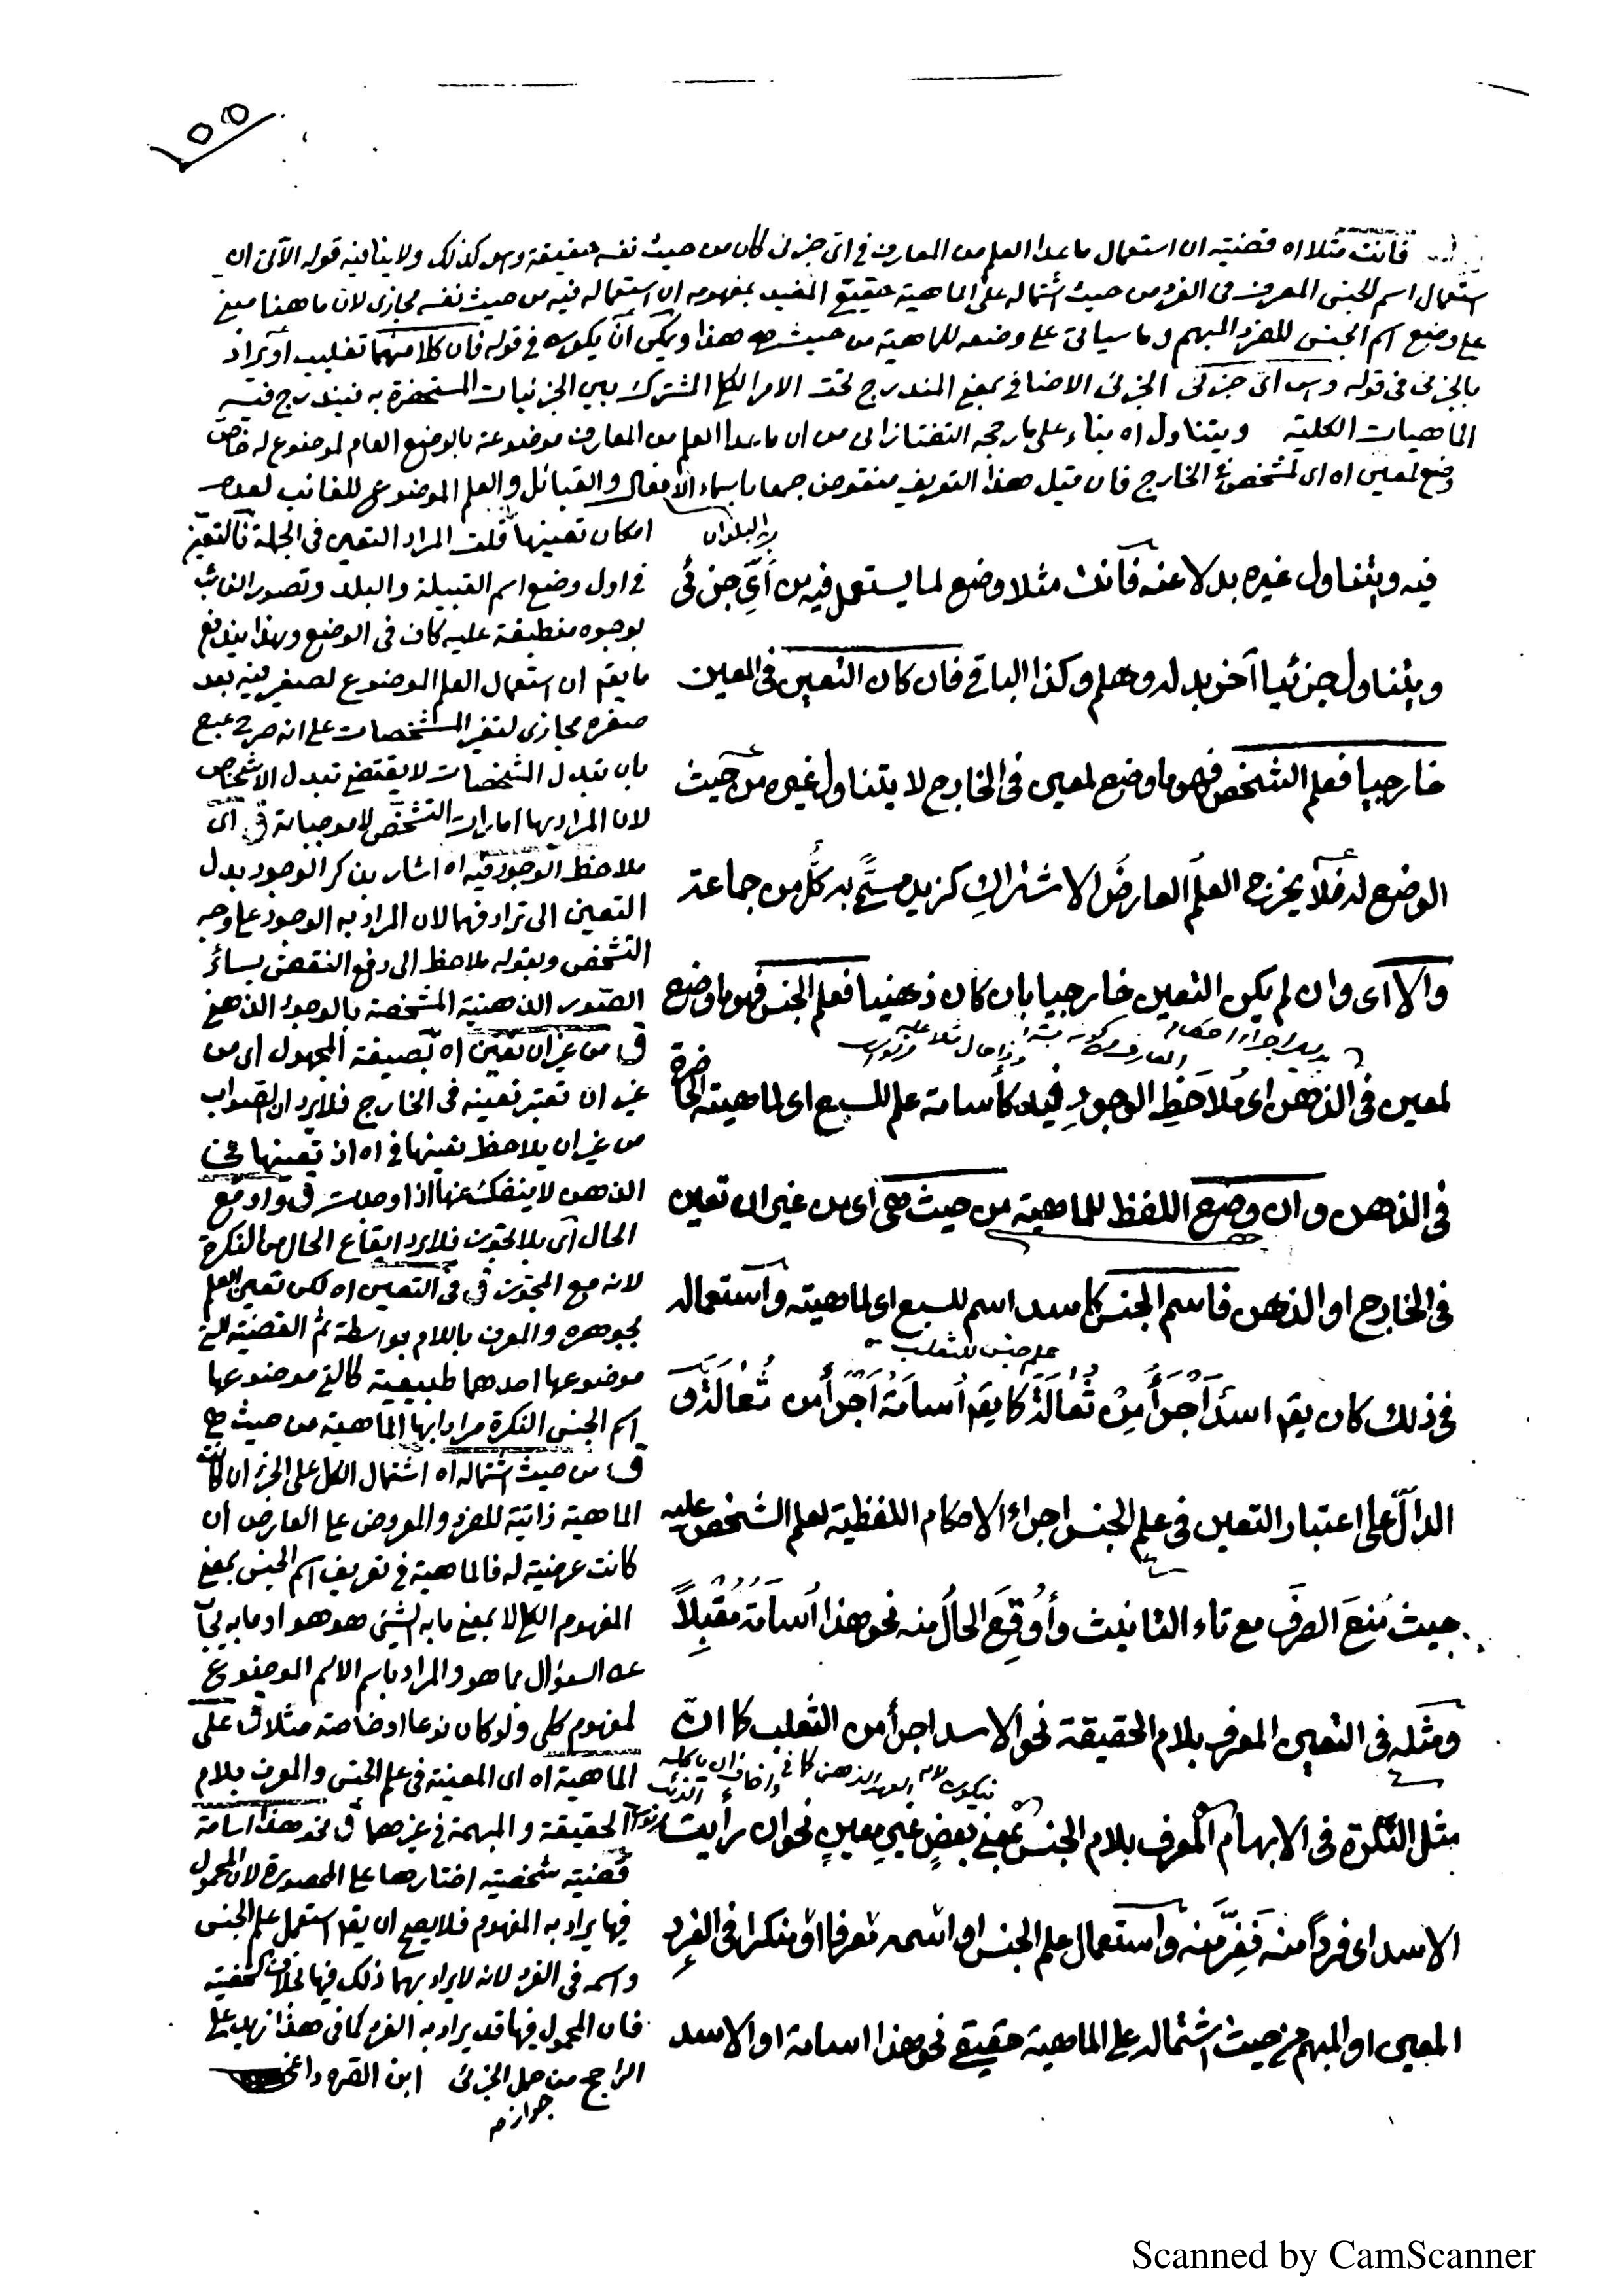 ١٥٥
فانت مثلا اه قضيته ان استعمال ماعدا العلم من المعارف في اى جزئى كان من حيث نفسه حقيقة وهو كذلك ولا ينافيه قوله الآتى ان
استعمال اسم الجنس المعرف فى الفرد من حيث اشتماله على الماهية حقيقى المفيد بمفهومه ان استعماله فيه من حيث نفسه مجازى لان ما هنا مبنى
على وضع اسم الجنس للفرد المبهم وما سياتى على وضعه للماهية من حيث هى هذا ويمكن ان يكون فى قوله فان كلا منهما تغليب او يراد
بالجزئى فى قوله اى جزئى الجزئى الاضافى بمعنى المندرج تحت الامر الكلى المشترك بين الجزئيات المستحضرة به فيندرج فيه
الماهيات الكلية ويتناول اه بناء على ما رجحه التفتازانى من ان ماعدا العلم من المعارف موضوعة بالوضع العام لموضوع له خاص
وضع لمعين اه اى لمتشخص فى الخارج فان قيل هذا التعريف منقوض جمعا باسماء الافعال والقبائل والعلم الموضوع للغائب لعدم
امكان تعينها قلت المراد التعين فى الجملة فالتعين
فى اول وضع اسم القبيلة والبلد وتصور الغائب
بوجوه منطبقة عليه كاف فى الوضع وبهذا يندفع
ما يقم ان استعمال العلم الموضوع لصغير فيه بعد
صغره مجازى لتغير المشخصات على انه صرح
بان تبدل المشخصات لا يقتضى تبدل الاشخاص
لان المراد بها امارات التشخص لا موجباته ق اى
ملاحظ الوجود فيه اه اشار بذكر الوجود بدل
التعين الى ترادفهما لان المراد به الوجود على وجه
التشخص وبقوله ملاحظ الى دفع النقض بسائر
الصور الذهنية المشخصة بالوجود الذهنى
ق من غير ان تعين اه بصيغة المجهول اى من
غير ان تعتبر تعينه فى الخارج فلا يرد ان الصواب
من غير ان يلاحظ تعينها فى اه اذ تعينها فى
الذهن لا ينفك عنها اذا وجدت ق واوقع
الحال اى بلا تجوز فلا يرد ايقاع الحال من النكرة
لانه مع المجوز ق فى التعين اه لكن تعين العلم
بجوهره والمعرف باللام بواسطة ثم القضية التى
موضوعها احدهما طبيعية كالتى موضوعها
اسم الجنس النكرة مرادا بها الماهية من حيث هى
ق من حيث اشتماله اه اشتمال الكل على الجزء ان كانت
الماهية ذاتية للفرد والمعروض على العارض ان
كانت عرضية له فالماهية فى تعريف اسم الجنس بمعنى
المفهوم الكلى لا بمعنى ما به الشئ هو هو او ما به يجاب
عن السؤال بما هو والمراد باسم الاسم الموضوع
لمفهوم كلى ولو كان نوعا او خاصة مثلا ق على
الماهية اه اى المعينة فى علم الجنس والمعرف بلام
الحقيقة والمبهمة فى غيرهما ق نحو هذا اسامة
قضية شخصية اختارها على المحصورة لان المحمول
فيها يراد به المفهوم فلا يصح ان يقم استعمل علم الجنس
واسمه فى الفرد لانه لا يراد بهما ذلك فيها بخلاف الشخصية
فان المحمول فيها قد يراد به الفرد كما فى هذا زيد على
الراجح من حمل الجزئى ابن القره داغى
جوازه
فيه ويتناول غيره بدلا عنه فانت مثلا وضع لما يستعمل فيه من اَىِّ جزئى
ويتناول جزئيا آخر بدله وهلم وكذا الباقى فان كان التعين فى المعين
خارجيا فعلم الشخص فهو ما وضع لمعين فى الخارج لا يتناول غيره من حيث
الوضع له فلا يخرج العلمُ العارضُ الاشتراكِ كزيد مسمًّى به كلٌّ من جماعة
والا اى وان لم يكن التعين خارجيا بان كان ذهنيا فعلم الجنس فهو ما وضع
لمعين فى الذهن اى مُلاحَظِ الوجودِ فيه كأسامة علم للسبع اى لماهيته الحاضرة
فى الذهن وان وضع اللفظ للماهية من حيث هى اى من غير ان تعين
فى الخارج او الذهن فاسم الجنس كاسد اسم للسبع اى لماهيته واستعماله
علم جنس للثعلب
فى ذلك كان يقم اسدٌ اَجْرَأُ مِنْ ثُعَالَةَ كما يقم اُسَامَةُ اَجْرَأُ من ثُعَالَةَ و
الدالّ على اعتبار التعين فى علم الجنس اجراء الاحكام اللفظية لعلم الشخص عليه
حيث مُنِعَ الصرفَ مع تاء التانيث وأُوقِعَ الحالُ منه نحو هذا اُسَامَةُ مُقْبِلاً
ومثله فى التعين المعرف بلام الحقيقة نحو الاسد اجرأ من الثعلب كما ان
مثل النكرة فى الابهام المعرف بلام الجنس بمعنى بعضٍ غيرِ معينٍ نحو ان رايت
الاسد اى فردًا منه فَفِرَّ منه واستعمال علم الجنس او اسمه معرفا او منكرا فى الفردِ
المعين او المبهم من حيث اشتماله على الماهية حقيقى نحو هذا اسامة او الاسد
Scanned by CamScanner